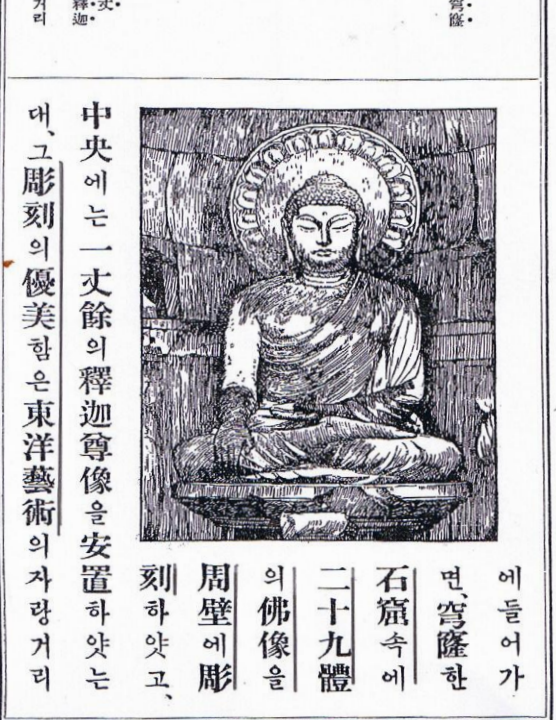 穹窿
丈
釋迦
거리
에들어가
면、穹窿한
石窟속에
二十九體
의佛像을
周壁에彫
刻하얏고、
中央에는一丈餘의釋迦尊像을安置하얏는
대、그彫刻의優美함은東洋藝術의자랑거리